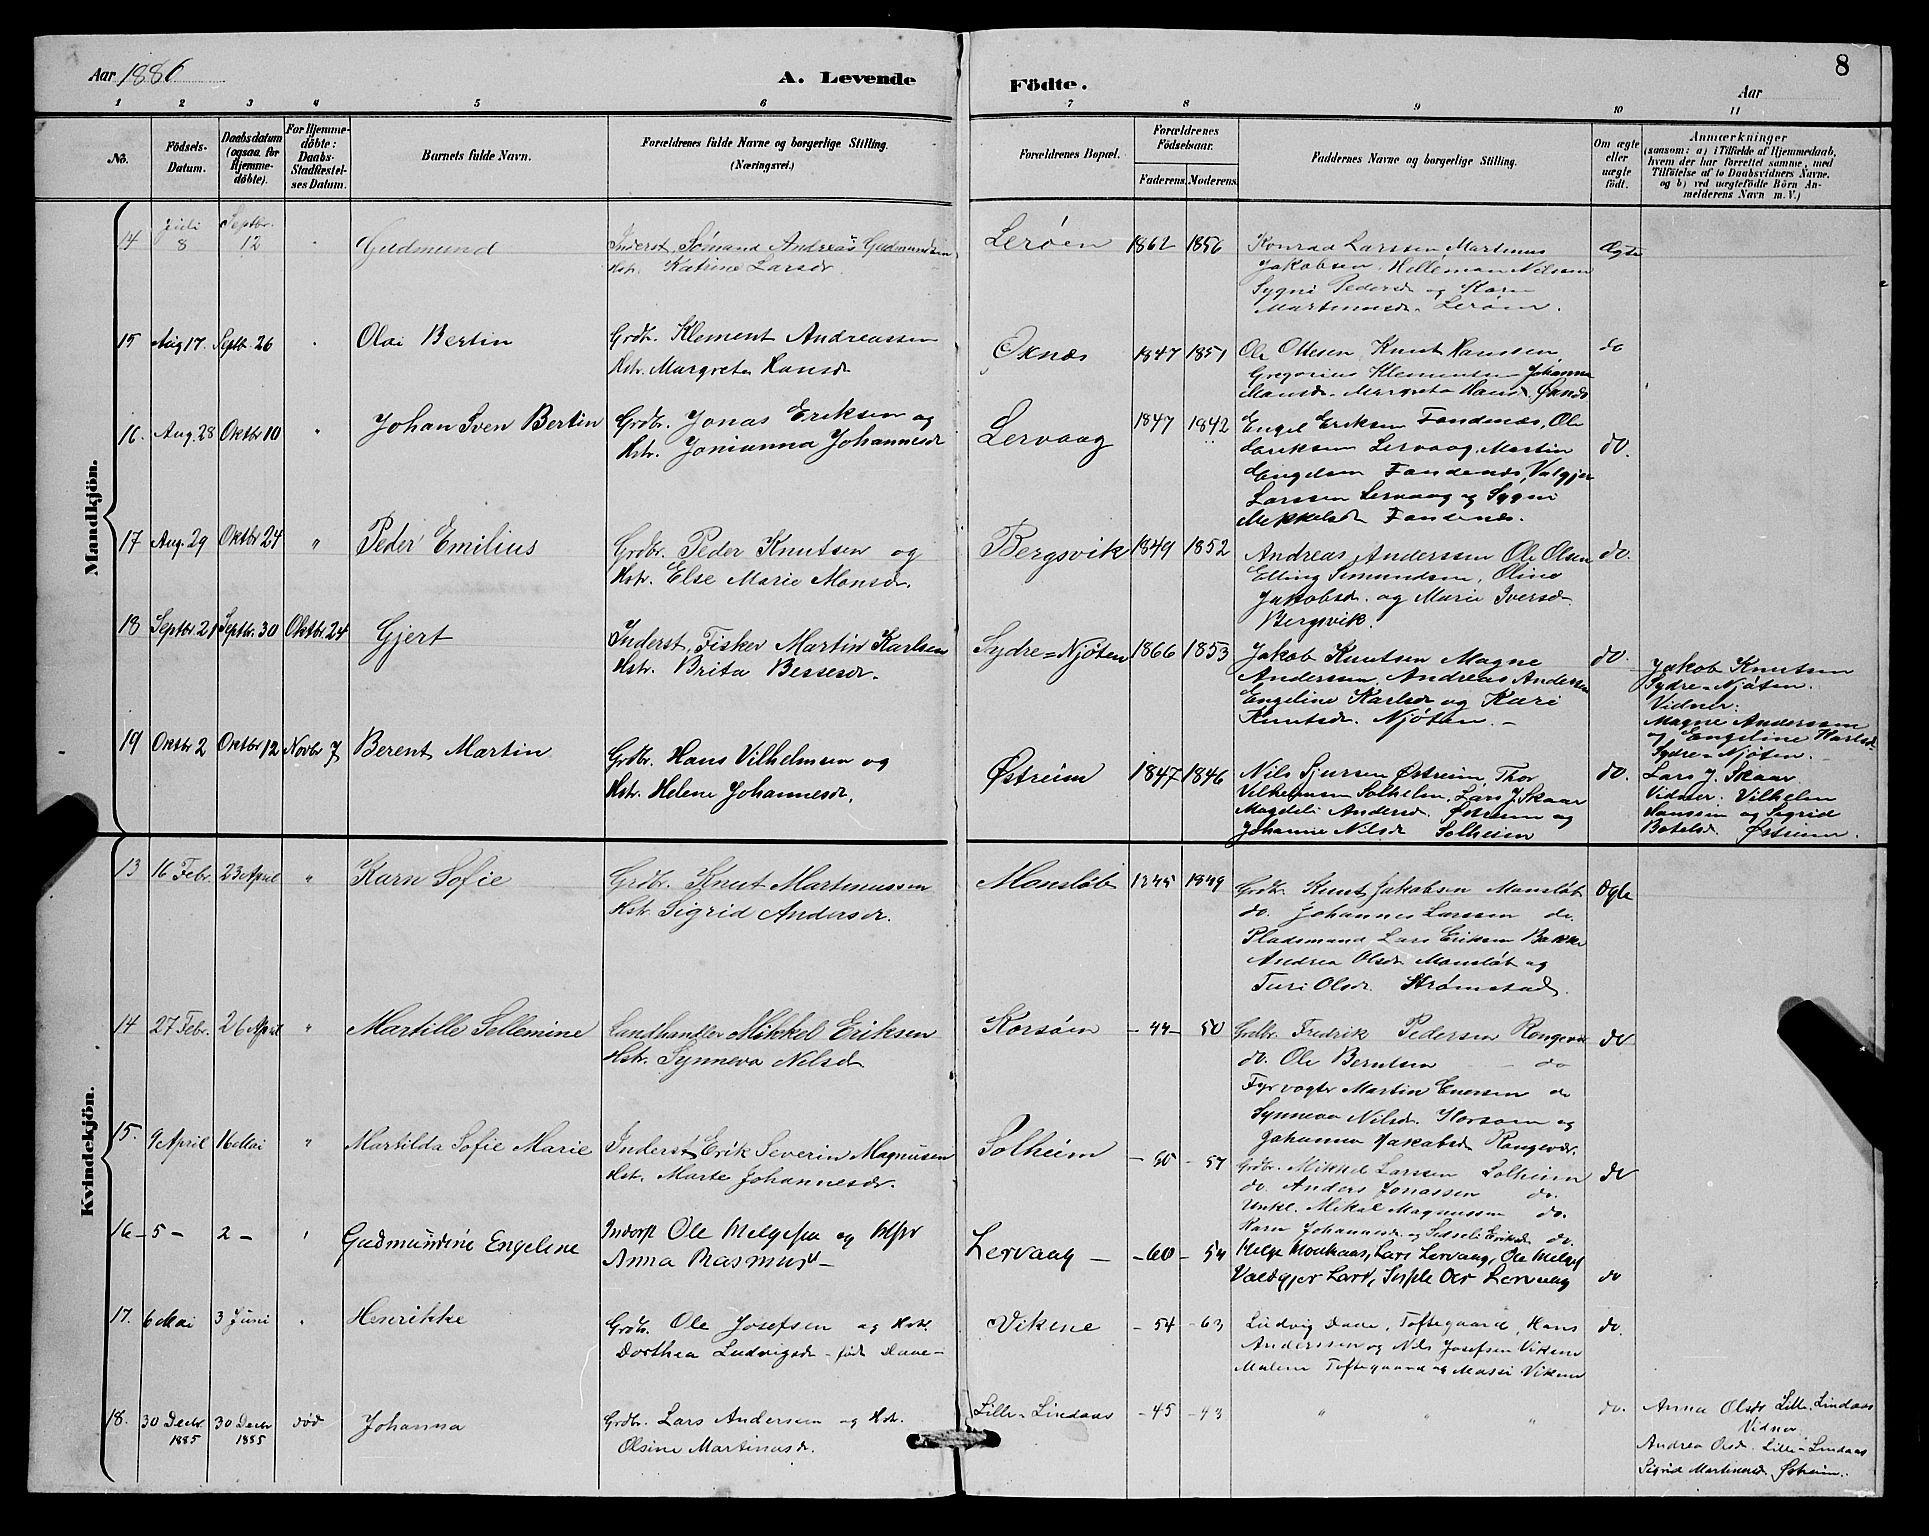 Aar 1886
A. Levende Födte.
8
Aar
1 2 3 4 5 6 7 8 9 10 11
No.
Födsels-Datum.
Daabsdatum (ogsaa for Hjemme-döbte).
For Hjemme-döbte: Daabs-Stadfæstelses Datum.
Barnets fulde Navn.
Forældrenes fulde Navne og borgerlige Stilling. (Næringsvei.)
Forældrenes Bopæl.
Forældrenes Födselsaar.
Faderens. Moderens.
Faddernes Navne og borgerlige Stilling.
Om ægte eller uægte födt.
Anmærkninger
(saasom: a) i Tilfælde af Hjemmedaab, hvem der har forrettet samme, med Tilföielse af to Daabsvidners Navne, og b) ved uægtefödte Börn Anmelderens Navn m. V.)
Mandkjön.
14 Juli 8 Septbr. 12 " Gudmund
Inderst, Sømand Andreas Gudmundsen
Hstr. Katrine Larsdr.
Lerøen 1862 1856
Konrad Larssen, Martinus
Jakobsen, Helleman Nilsen
Sygni Pedersd. og Karn
Martinusd. Lerøen.
Ægte
15 Aug 17. Septb. 26 " Olai Bertin
Grdbr. Klement Andreassen
Hstr. Margreta Hansdr
Øknes 1847 1851
Ole Ottesen, Knut Hanssen,
Gregorius Klementsen Johanna
Mansd. Margreta Hansd. Øknes
do
16. Aug. 28 Oktbr 10 " Johan Sven Bertin
Grdbr. Jonas Eriksen og
Hstr. Jonianna Johannesdr
Lervaag 1847 1842
Engel Eriksen Fondenæs, Ole
Lervaag, Martin
Engelsen Fondenes, Valgjer
Larssen Lervaag og Sygni
Mikkelsd. Fondenes.
do.
17 Aug. 29 Oktbr 24 " Peder Emilius
Grdbr. Peder Knutsen og
Hstr. Else Marie Monsdr.
Bergsvik 1849 1852
Andreas Anderssen Ole Olsen
Elling Simundsen, Oline
Jakobsd. og Marie Iversd.
Bergsvik.
do.
18 Septbr. 21 Septbr. 30 Oktbr. 24 Gjert
Inderst, Fisker Martin Karlsen
Hstr. Brita Bessesdr.
Sydre=Njøten 1866 1853
Jakob Knutsen Magne
Anderssen, Andreas Anderssen
Engeline Karlsd. og Kari
Knutsd. Njøten. -
do.
Jakob Knutsen
Sydre=Njøten.
Vidner:
Magne Anderssen
og Engeline Karlsd.
Sydre=Njøten.
19 Oktbr 2 Oktbr 12 Novbr 7 Berent Martin
Grdbr. Hans Vilhelmsen og
Hstr. Helene Johannesdr.
Østreim 1847 1846
Nils Sjursen Østreim, Thor
Vilhelmsen Solheim, Lars J. Skaar
Magdeli Andersd. Østreim og
Johanne Nilsd. Solheim
do.
Lars J. Skaar
Vidner: Vilhelm
Hanssen og Sigrid
Botolsd. Østreim.
Kvindekjön.
13 16 Febr. 23 April " Karn Sofie
Grdbr. Knut Martinussen
Hstr. Sigrid Andersdr.
Monsløb 1845 1849
Grdbr. Knut Jakobsen Monsløt
do. Johannes Larssen do.
Pladsmand Lars Eriksen Bakke
Andrea Olsd. Monsløt og
Turi Olsdr. Strømstad.
Ægte
14 27 Febr. 26 April " Martille Sellemine
Landhandler Mikkel Eriksen
Hstr. Synneva Nilsd
Korsøen - 44 - 50
Grdbr. Fredrik Pedersen Rongevær
do. Ole Berntsen do
Fyrvogter Martin do
Synneva Nilsd. Korsøen og
Johanna Jakobsd. Rongevær.
do
15. 9 April 16 Mai " Martilda Sofie Marie
Inderst Erik Severin Magnusen
Hstr. Marte Johannesdr.
Solheim - 60 - 57
Grdbr. Mikkel Larssen Solheim
do. Anders Jonassen do.
Unkl. Mikal Magnussen do.
Karn Johannesd. og Sidseli Eriksd. do.
do
16 - 5 - 2 - " Gudmundine Engeline
Inderst Ole og
Anna Rasmusd -
Lervaag - - 60 - 54
Lars Lervaag, Ole
Valdgjer Larsd, Olsd Lervaag
do
17. 6 Mai 3 Juni " Henrikke
Grdbr. Ole Josefsen og Hstr.
Dorthea Ludvigsd - født Daae -
Vikene - 54 - 63
Ludvig Daae, Toftegaard, Hans
Anderssen og Nils Josefsen Viken
Malene Toftegaard og Massi Viken
do.
18. 30 Decbr. 1885 30 Decbr 1885 død Johanna
Grdbr. Lars Andersen og Hst.
Olsine Martinusdr.
Lille=Lindaas - 45 - 43
" " "
do.
Anna Olsdr Lille=Lindaas
Vidner
Andrea Olsd. Lille=Lindaas
Sigrid Martinusd. Østreim.